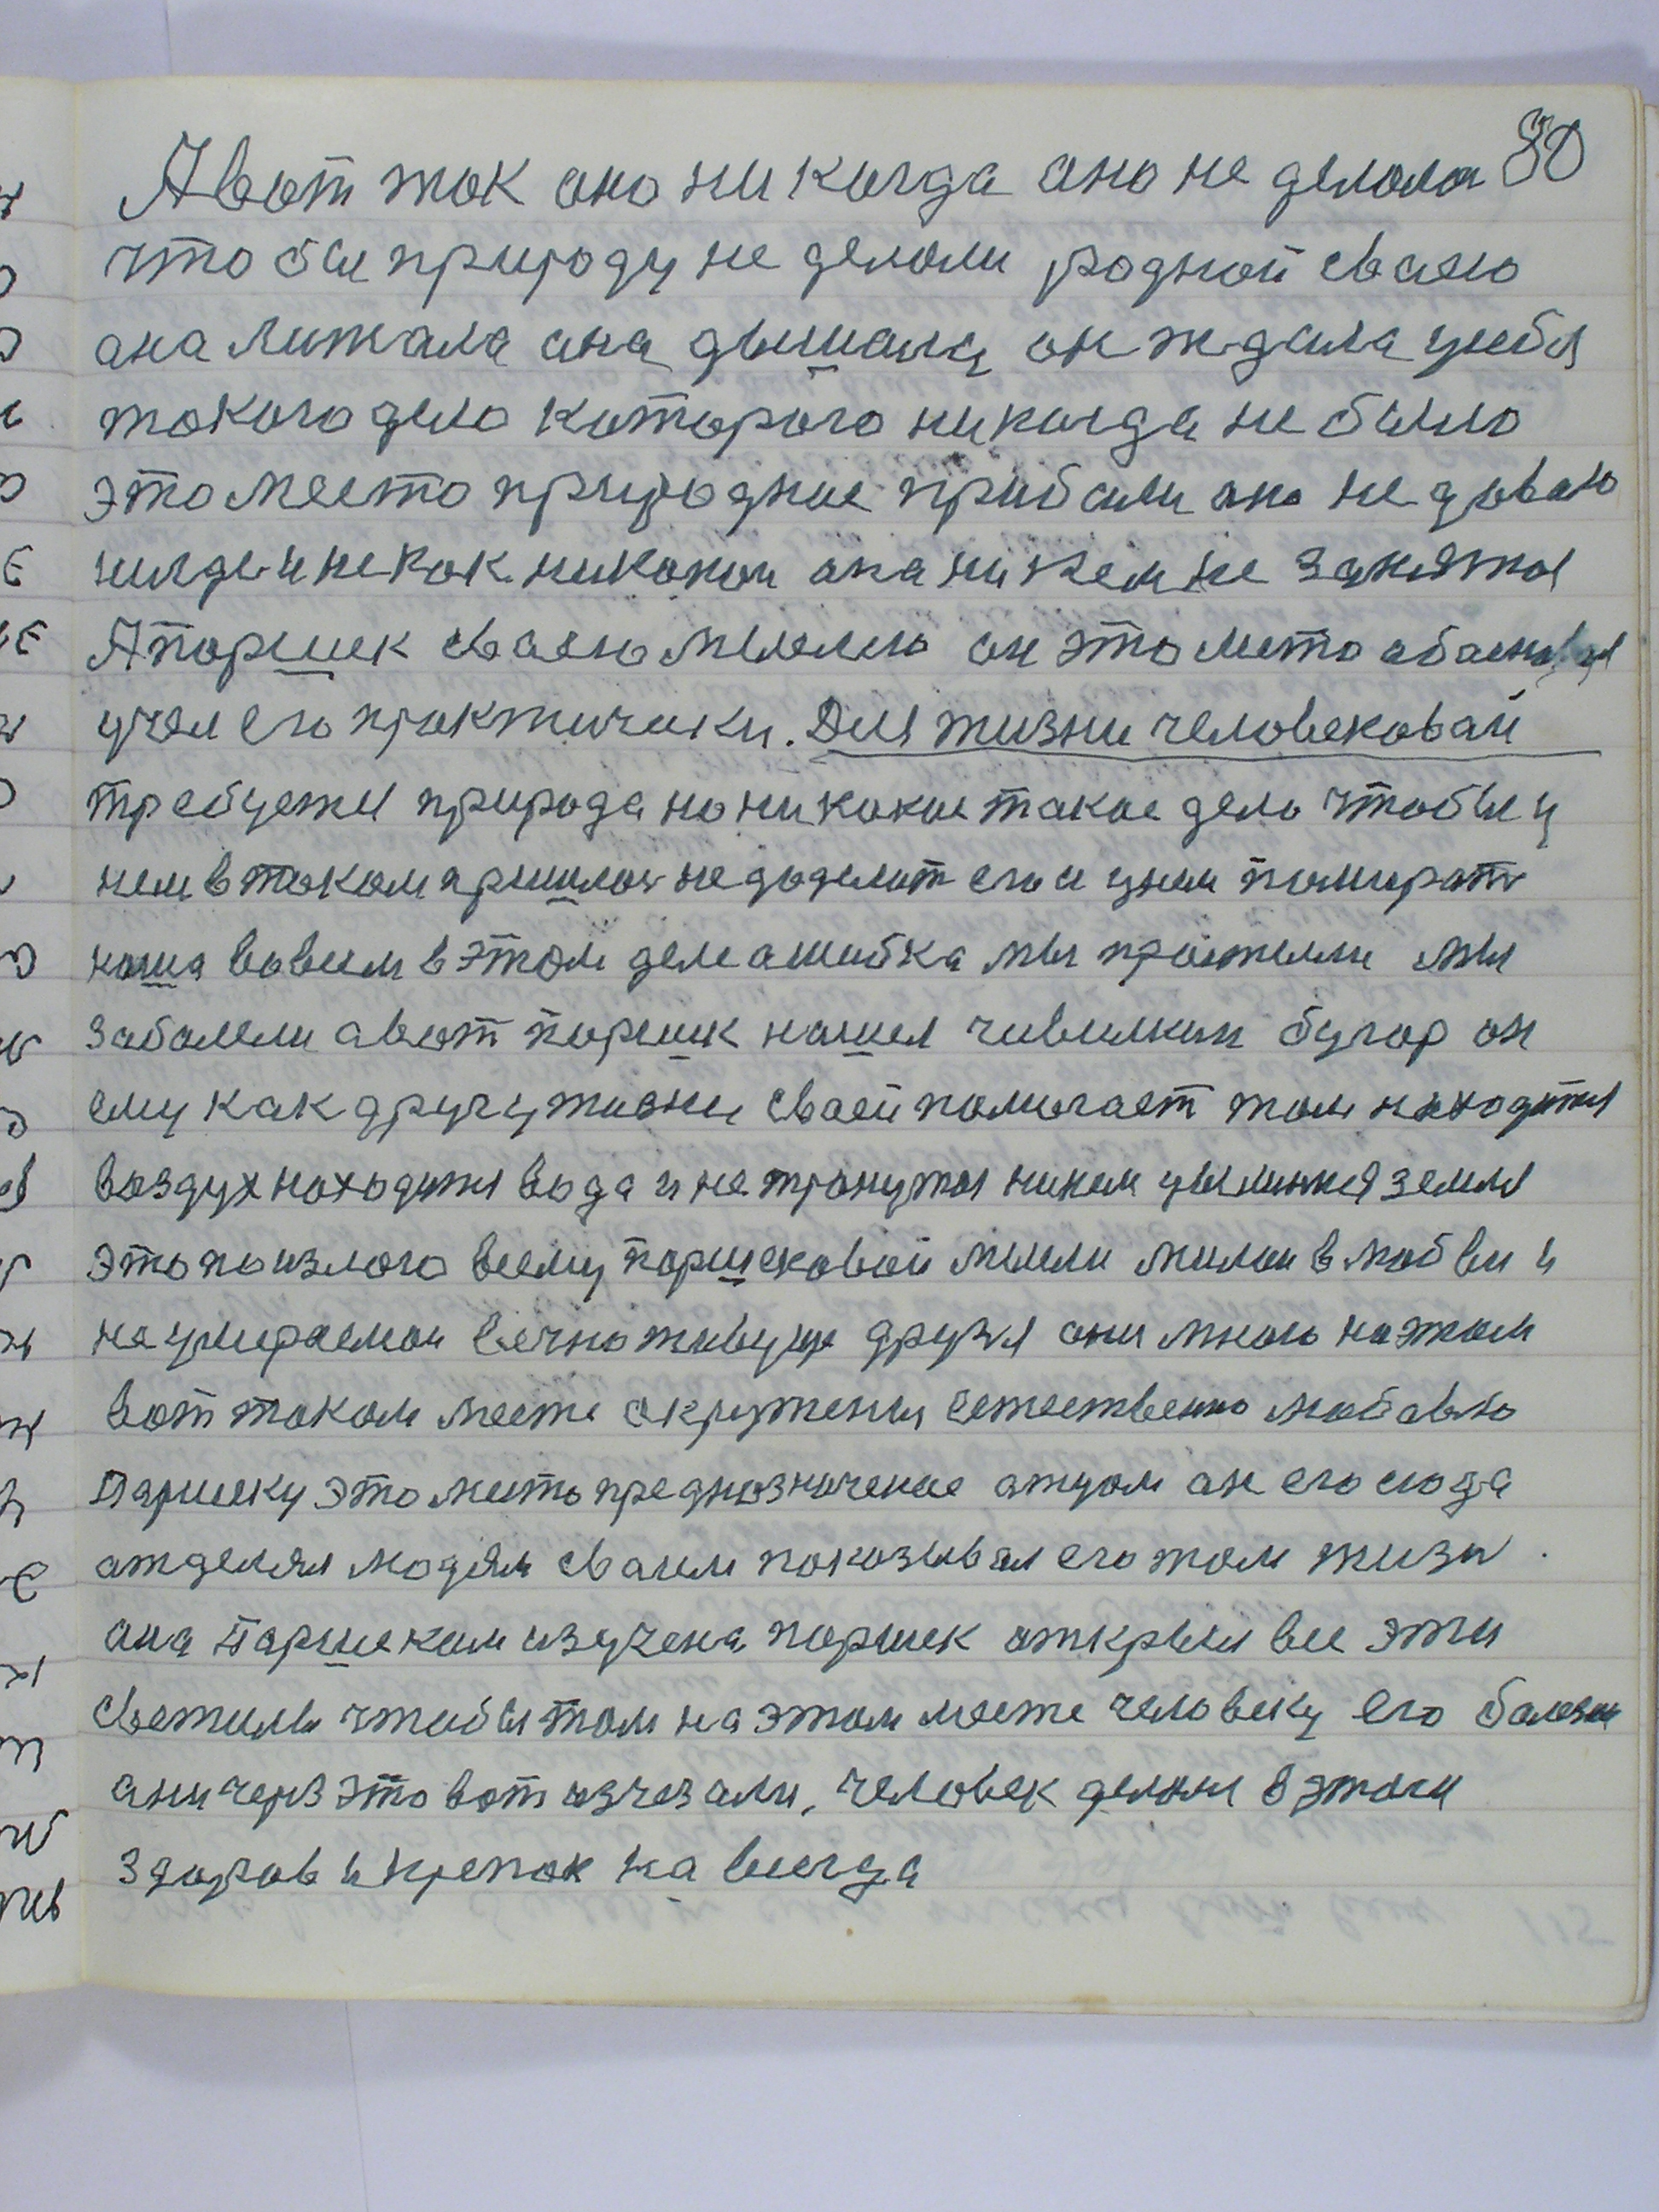 80
А вот так ано ни когда ано не делола
что бы природу не делоли родной сваею
ана лижала ана дышала он ждала у себя
токого дело каторого никагда не было
это место природние прибыли ано не даваю
нигде и не как никокои ана ни кем не занятоя
А паршек сваею мыслию он это место абаснавал
учел его практически. Для жизни человековай
требуежи природа но никокие такое дело чтобы у
нем в таком пришлось не доделит его и у нем помират
наша вовсем в этом деле ашибка мы прожелли мы
заболели а вот паршик нашел чивилкин бугор он
ему как другу жизни сваей помогает там находится
воздух находится вода и не тронутоя никем цылинная земля
это по изlога всему паршековой мысли милои в любви и
не умираемои вечно живуще друзя они много на этом
вот таком месте окружения естественно любовью
Паршеку это место предназначение атцом ан его сюда
атделял людям сваим показывал его том жизн.
ана паршеком изучена паршек открыл все эти
светилы чтобы том на этом месте человеку его болезни
ани через это вот изчезали, человек делоля в этом
здоров и крепок на всегда